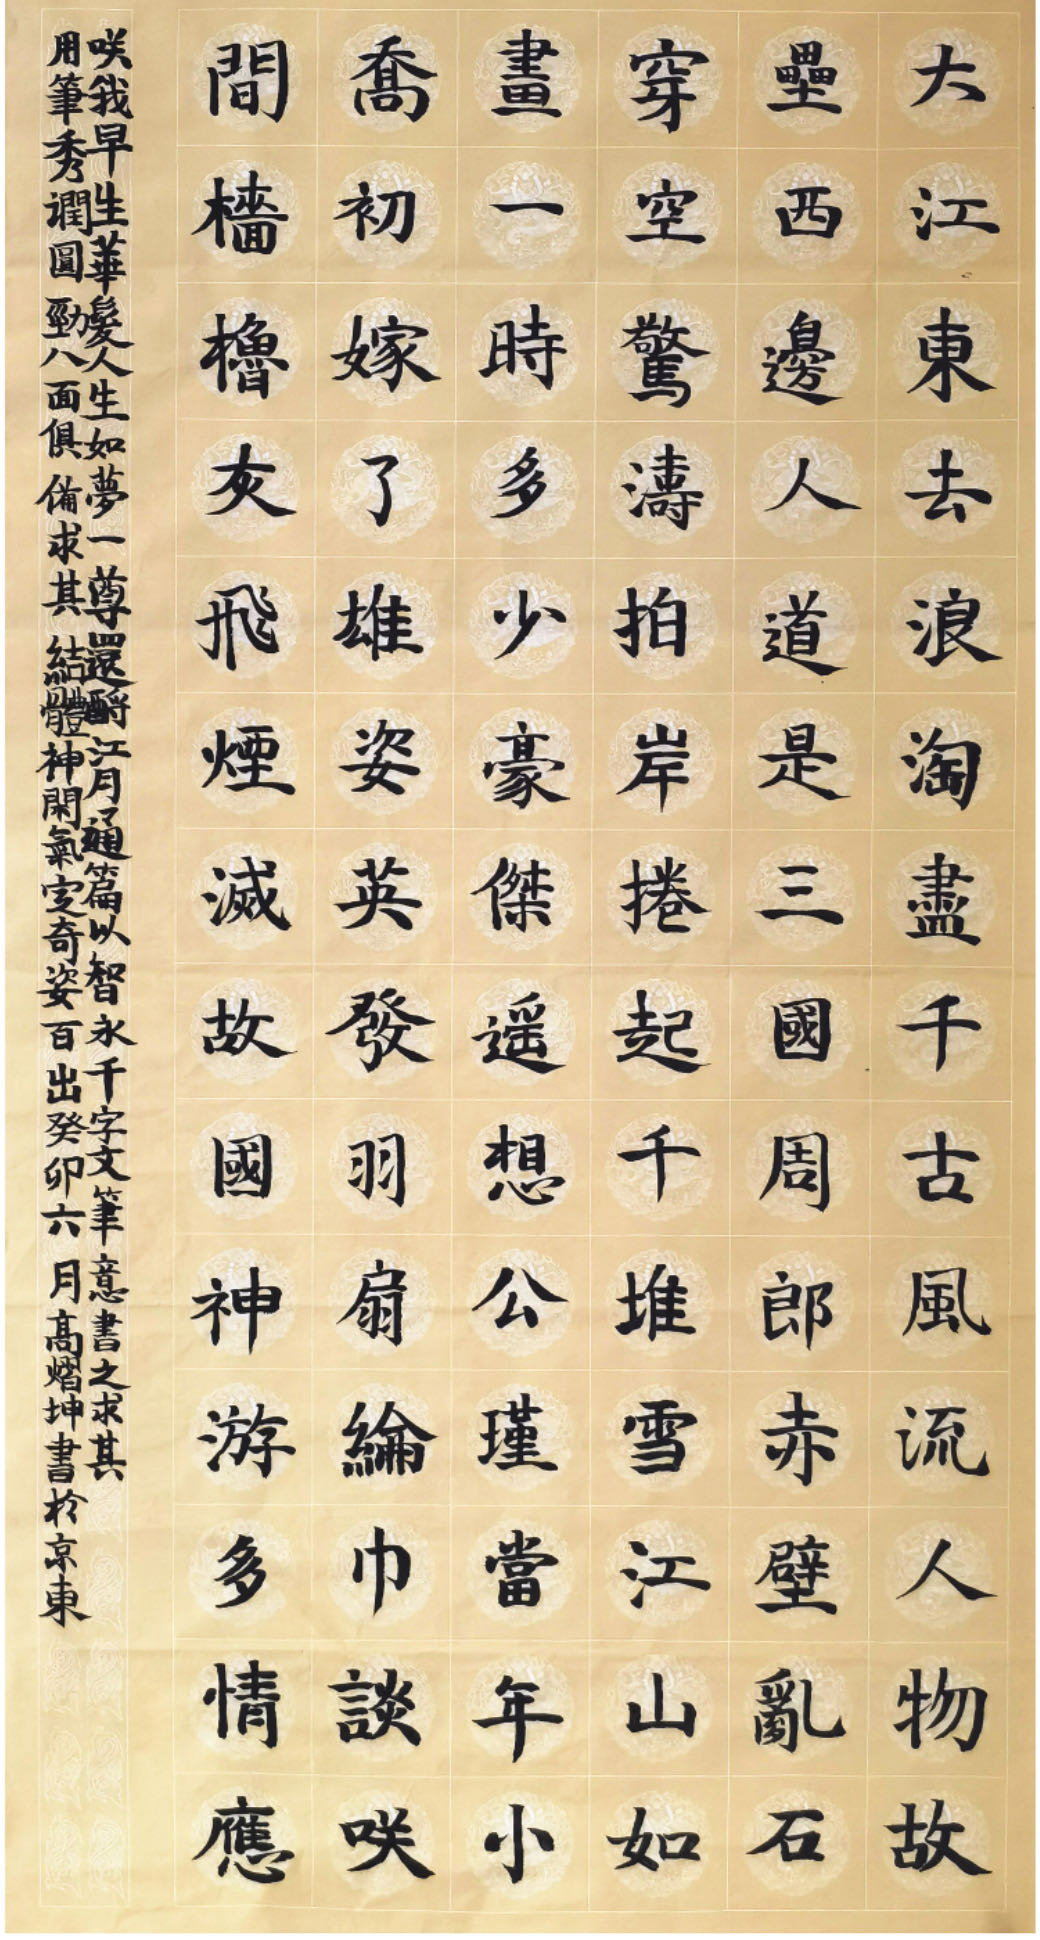 大江東去浪淘盡千古風流人物故
壘西邊人道是三國周郎赤壁亂石
穿空驚濤拍岸捲起千堆雪江山如
畫一時多少豪傑遥想公瑾當年小
喬初嫁了雄姿英發羽扇綸巾談咲
間檣櫓灰飛煙滅故國神游多情應
咲我早生華髮人生如夢一尊還酹江月通篇以智永千字文筆意書之求其
用筆秀潤圓勁八面俱備求其結體神閑氣定奇姿百出癸卯六月高熠坤書於京東